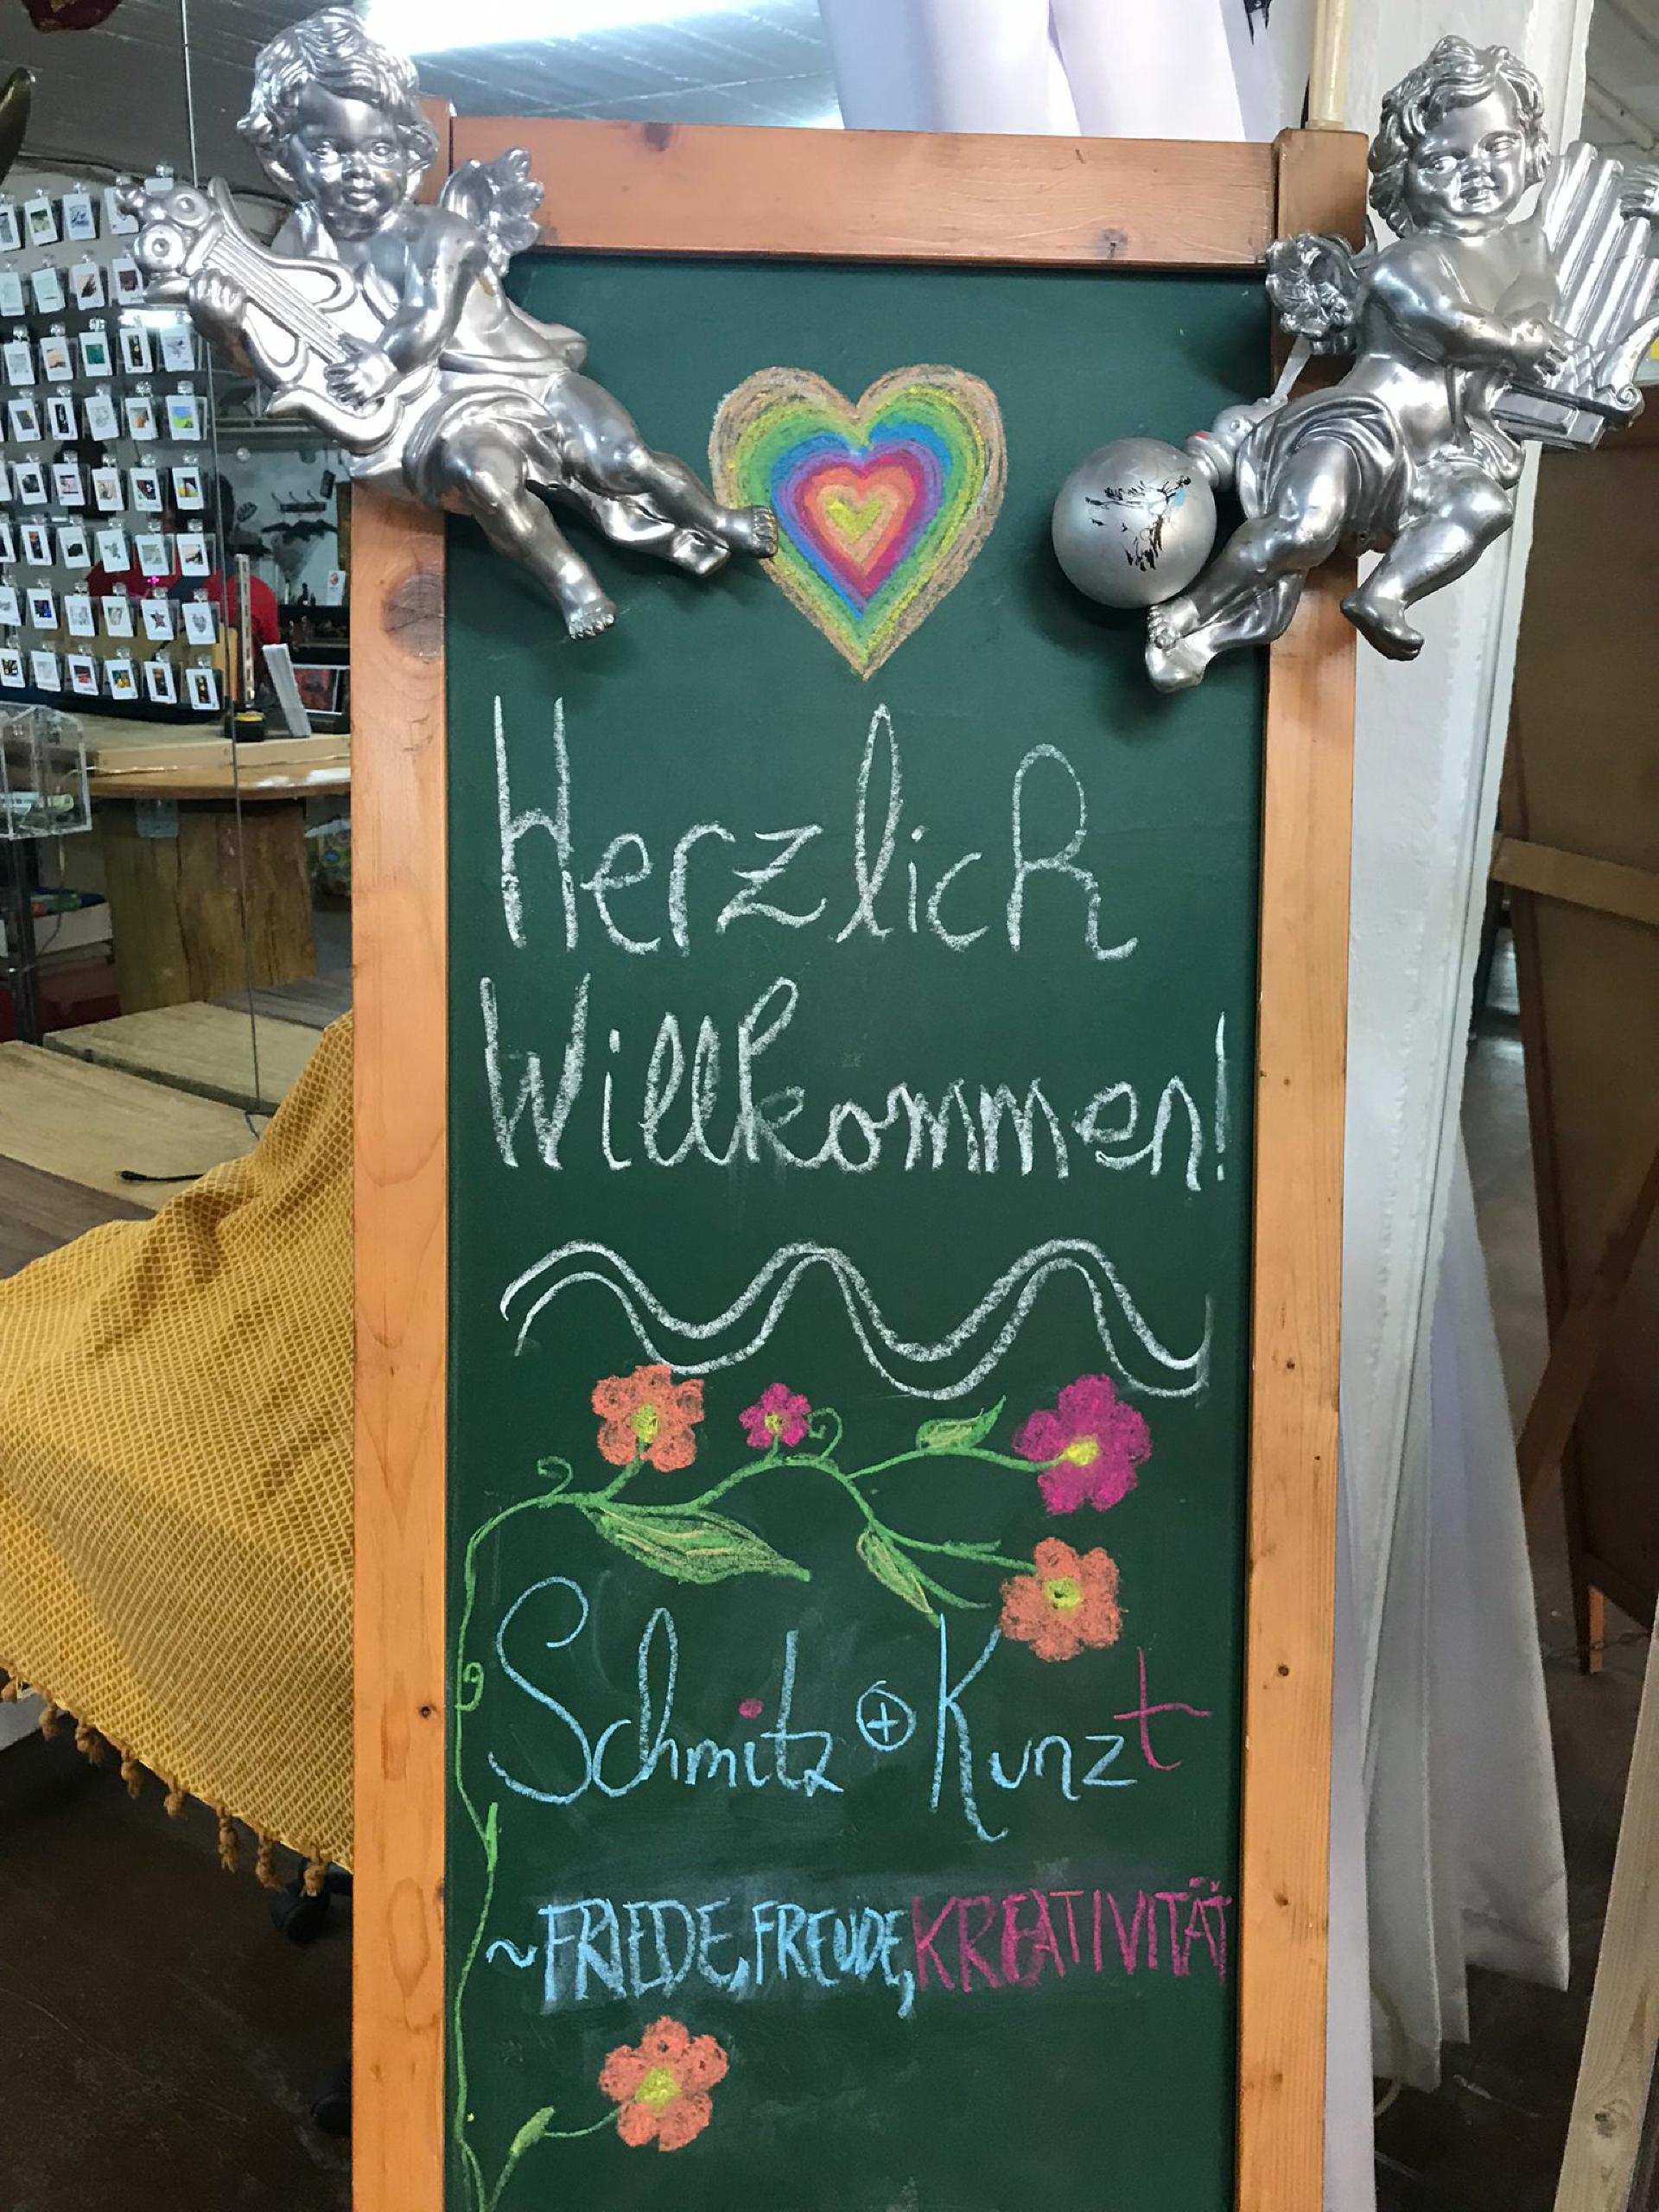 Herzlich
Willkommen!
Schmitz + Kunzt
~FRIEDE, FREUDE, KREATIVITÄT